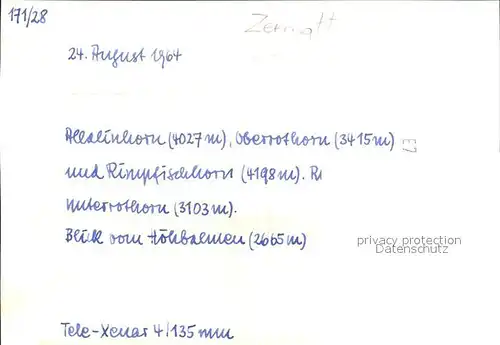 171/28
Zermatt
24. August 1964
Allalinhorn (4027m), Oberrothorn (3415m)
und Rimpfischhorn (4198m). R
Unterrothorn (3103m).
Blick vom Höhbalmen (2665m)
privacy protection
Datenschutz
Tele-Xenar 4/135mm